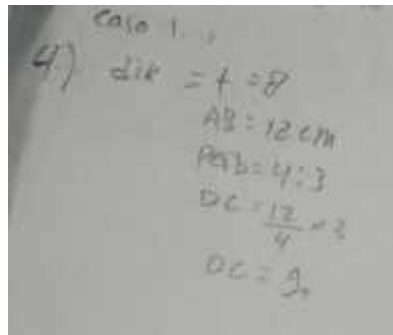 Caso 1...
4.) dik = t = 8
AB = 12 cm
Perb = 4 : 3
DC = 12/4 × 3
DC = 9.